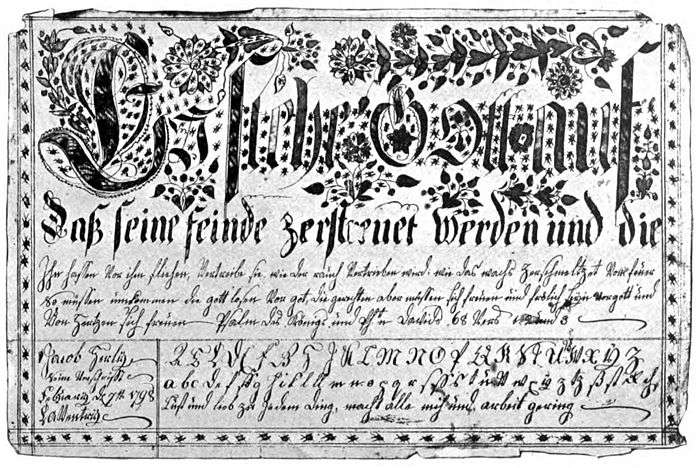 Es stehe Gott auf
Daß seine feinde zerstreuet werden und die
Ihn hassen Vor ihm fliehen, Vertreibe sie wie der rauch Vertrieben wird, wie das wachs zerschmeltzet Vom feuer
so müssen umkommen die gott losen Vor gott, die gerechten aber müssen sich freuen und frölich seyn vor gott und
Von Hertzen sich freuen Psalm Des Königs und Davids 68 Vers 3
Jacob
seine Vorschrift
D 7th 1798
A B C D E F G H J K L M N O P Q R S T U W X Y Z
a b c d e f g h i k l m n o p q r s t u w x y z
Lust und lieb zu jedem Ding, macht alle müh und arbeit gering